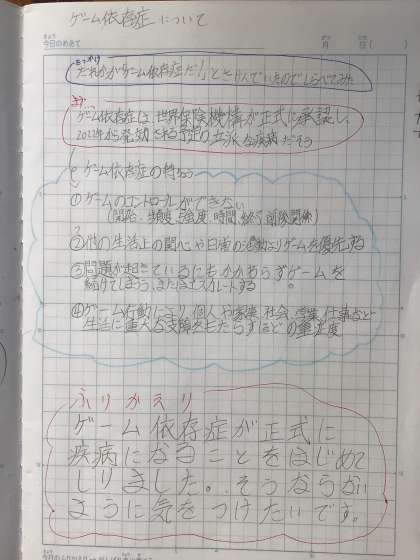 ゲーム依存症について
きょう
今日のめあて
月 日( )
きっかけ
だれかが「ゲーム依存症だ!」とさけんでいたのでしらべてみた
ゲーム依存症は、世界保険機構が正式に承認し、
2022年から発効される予定の立派な疾病だそう
ゲーム依存症の特ちょう
①ゲームのコントロールができない
(開始、頻度、強度、時間、終了、前後関係)
②他の生活上の関心や日常の活動よりゲームを優先する
③問題が起きているにもかかわらずゲームを
続けてしまう、またはエスカレートする
④ゲーム行動により、個人や家族、社会、学業、仕事など
生活に重大な支障をもたらすほどの重症度
ふりかえり
ゲーム依存症が正式に
疾病になることをはじめて
しりました。そうならない
ように気をつけたいです。